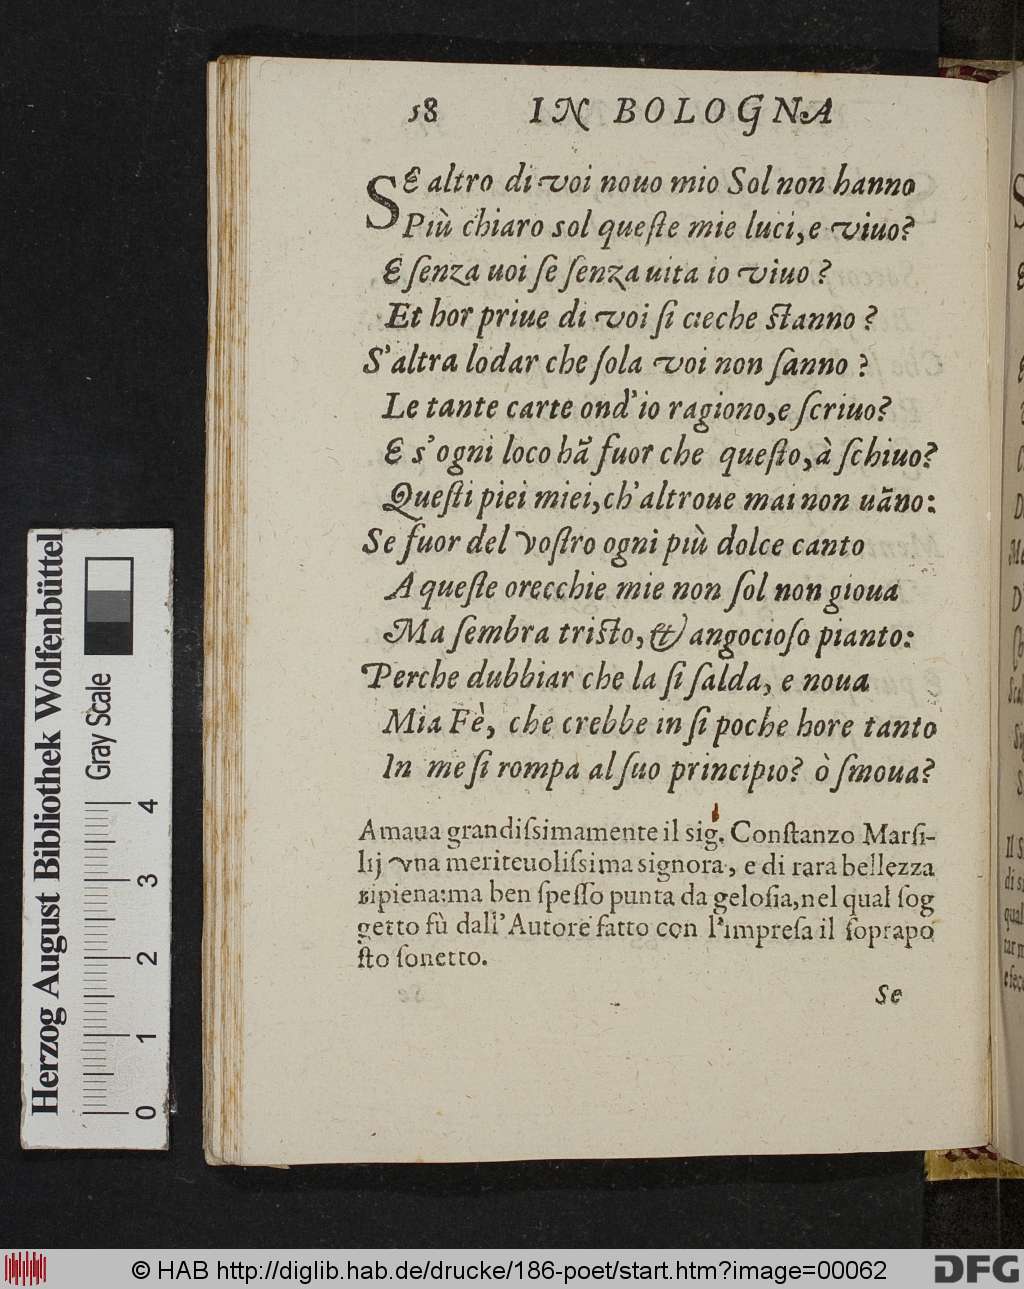 58 IN BOLOGNA
SE altro di voi nouo mio Sol non hanno
Più chiaro sol queſte mie luci, e viuo?
E ſenza uoi ſe ſenza uita io viuo?
Et hor priue di voi ſi cieche ſtanno?
S'altra lodar che ſola voi non ſanno?
Le tante carte ond'io ragiono, e ſcriuo?
E s'ogni loco hã fuor che queſto, à ſchiuo?
Queſti piei miei, ch'altroue mai non uãno:
Se fuor del voſtro ogni più dolce canto
A queſte orecchie mie non ſol non gioua
Ma ſembra triſto, & angocioſo pianto:
Perche dubbiar che la ſi ſalda, e noua
Mia Fè, che crebbe in ſi poche hore tanto
In me ſi rompa al ſuo principio? ò ſmoua?
Amaua grandiſsimamente il sig. Conſtanzo Marſi-
lij vna meriteuoliſsima signora, e di rara bellezza
ripiena: ma ben ſpeſſo punta da geloſia, nel qual ſog
getto fù dall'Autore fatto con l'impreſa il ſoprapo
ſto ſonetto.
Se
Herzog August Bibliothek Wolfenbüttel
Gray Scale
0 1 2 3 4
© HAB http://diglib.hab.de/drucke/186-poet/start.htm?image=00062
DFG